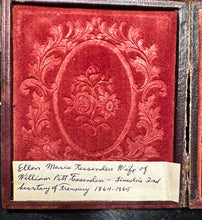 Ellen Maria Fessenden Wife of
William Pitt Fessenden - Lincoln's 2nd
Secretary of Treasury 1864-1865